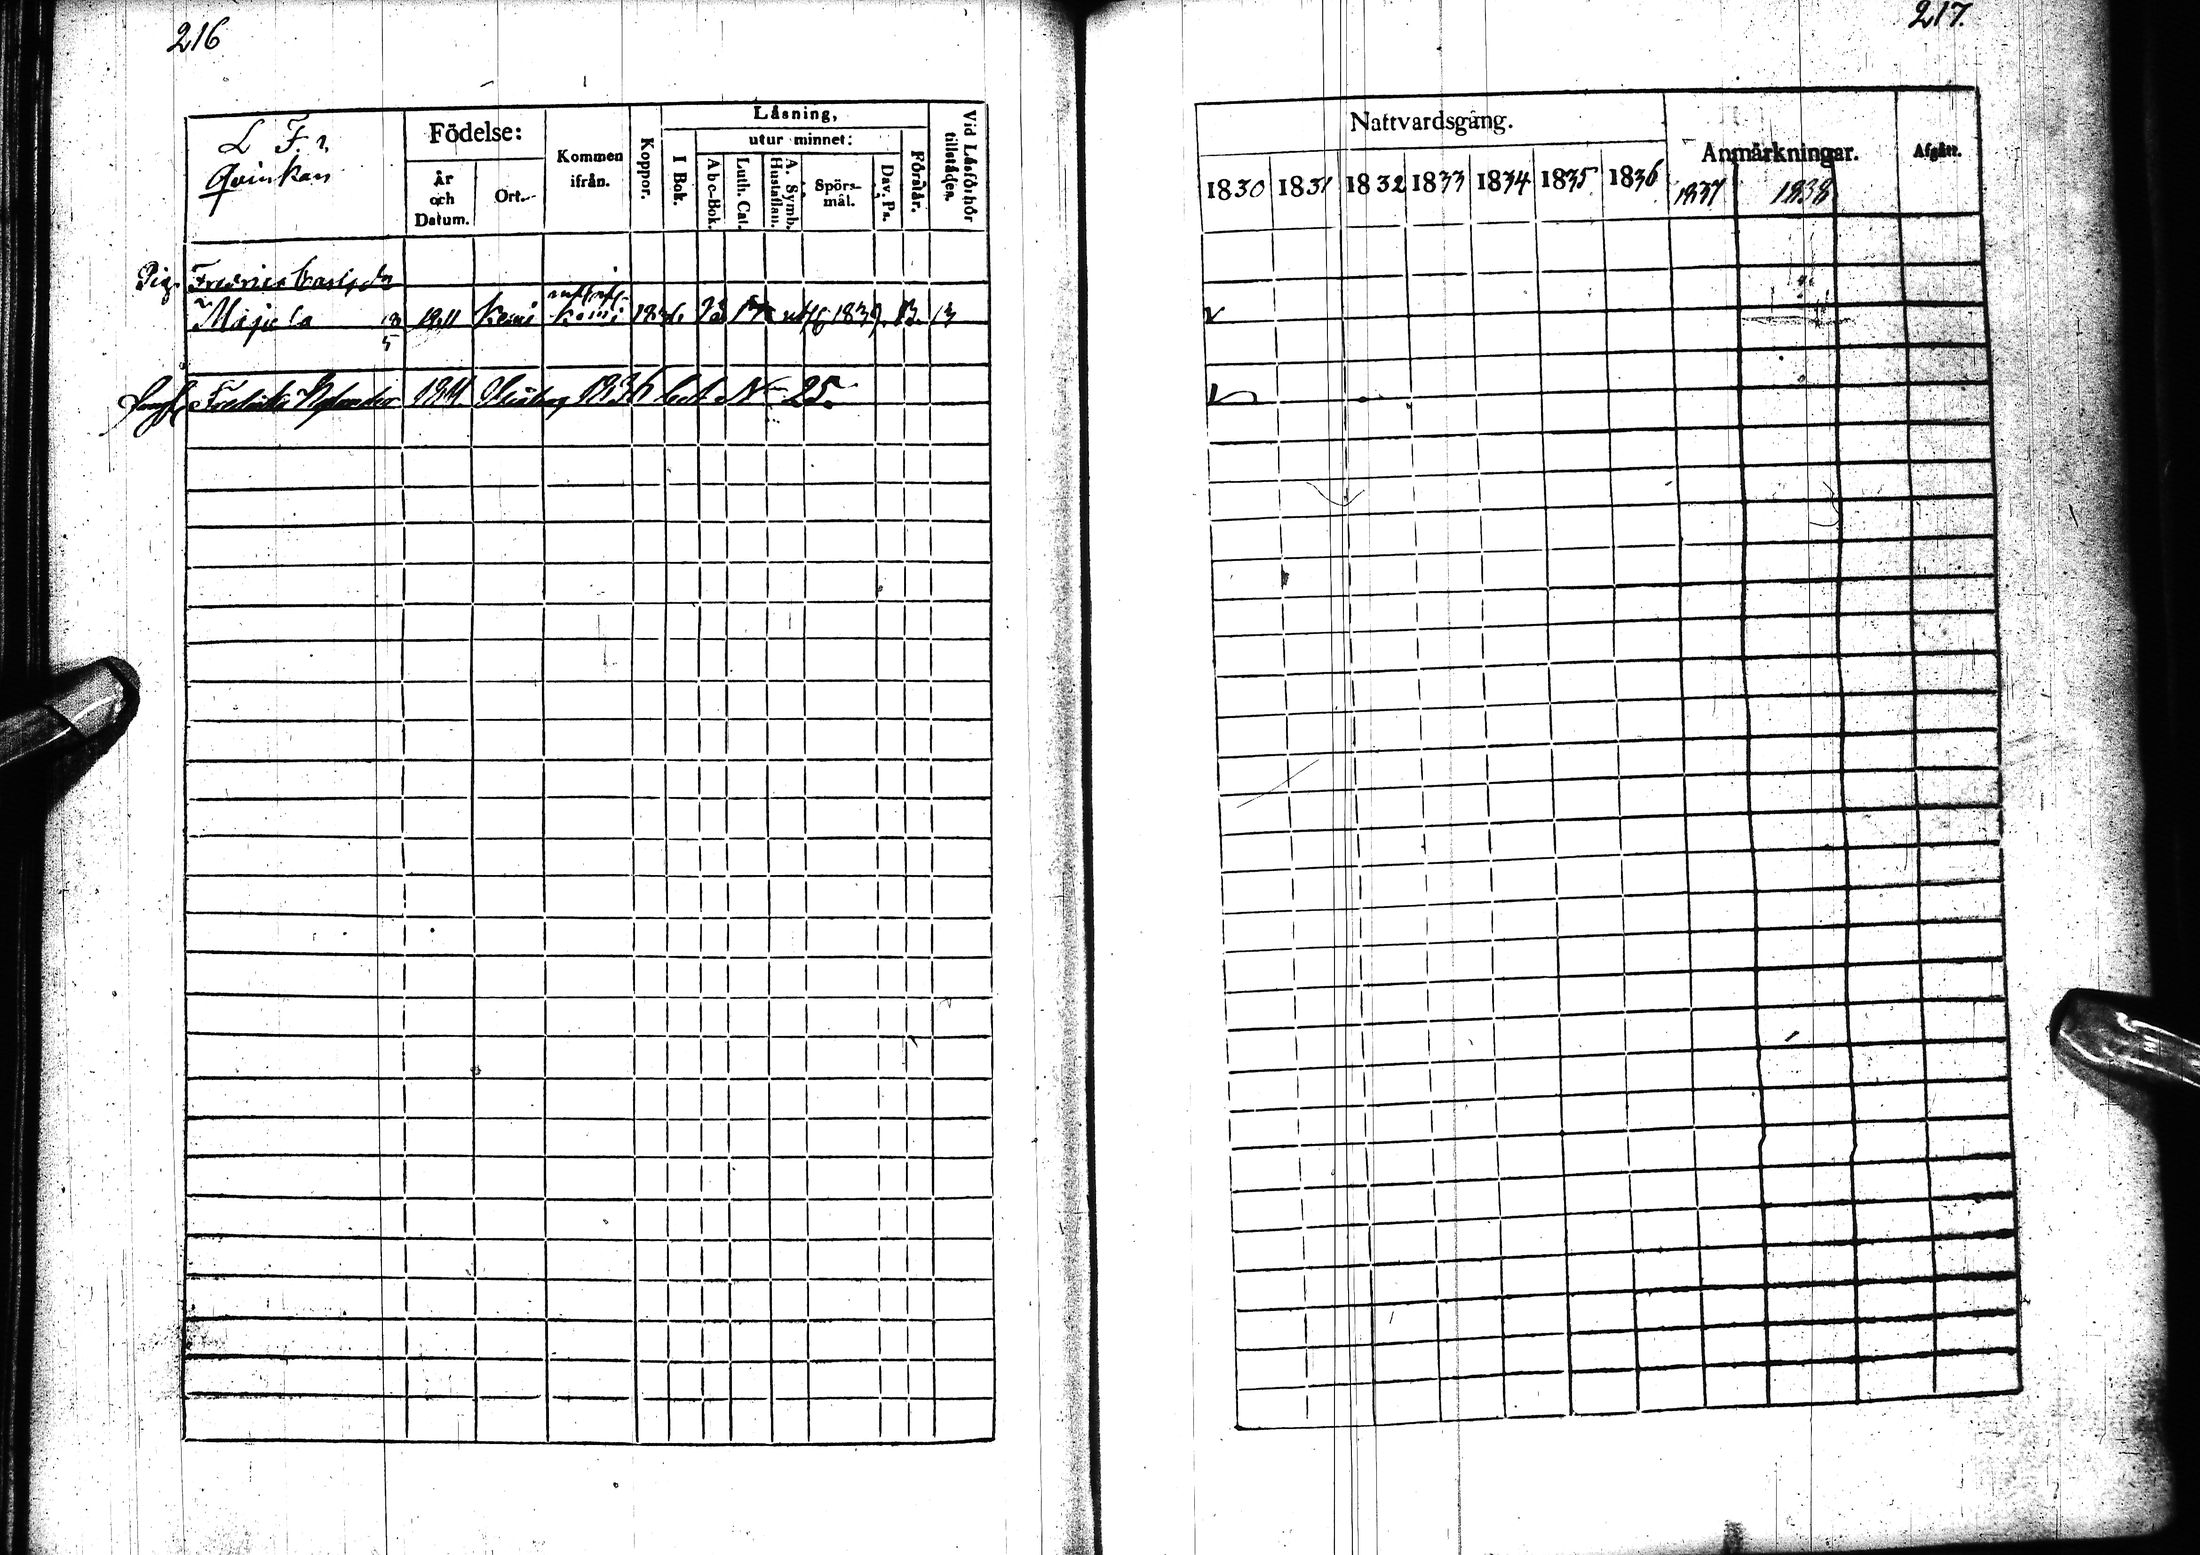 216
L. F.
Qvinkan
Födelse:
År och Datum.
Ort.
Kommen ifrån.
Koppor.
Låsning,
I Bok.
utur minnet:
Abc-Bok.
Luth. Cat.
A. Symb. Hustaflan.
Spörs-mål.
Dav. Ps.
Förstår.
Vid Läsförhör tillstädes.
Pig. Fredrica
Majela 1811 Kemi Kemi
Fredrika 1836 N 25.
217.
Nattvardsgång.
1830 1831 1832 1833 1834 1835 1836
Anmärkningar.
1837 1838
Afgått.